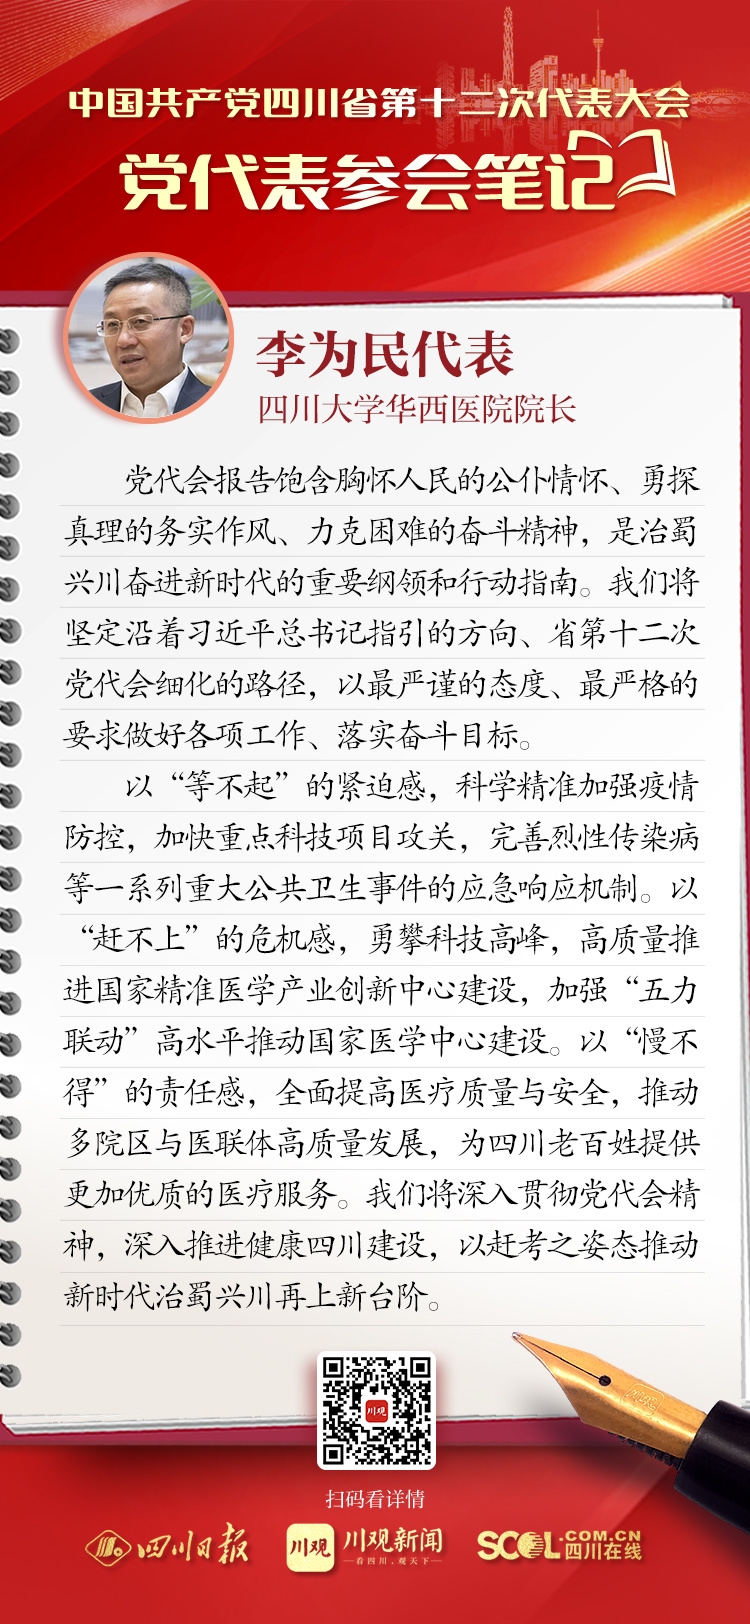 中国共产党四川省第十二次代表大会
党代表参会笔记
李为民代表
四川大学华西医院院长
党代会报告饱含胸怀人民的公仆情怀、勇探
真理的务实作风、力克困难的奋斗精神，是治蜀
兴川奋进新时代的重要纲领和行动指南。我们将
坚定沿着习近平总书记指引的方向、省第十二次
党代会细化的路径，以最严谨的态度、最严格的
要求做好各项工作、落实奋斗目标。
以“等不起”的紧迫感，科学精准加强疫情
防控，加快重点科技项目攻关，完善烈性传染病
等一系列重大公共卫生事件的应急响应机制。以
“赶不上”的危机感，勇攀科技高峰，高质量推
进国家精准医学产业创新中心建设，加强“五力
联动”高水平推动国家医学中心建设。以“慢不
得”的责任感，全面提高医疗质量与安全，推动
多院区与医联体高质量发展，为四川老百姓提供
更加优质的医疗服务。我们将深入贯彻党代会精
神，深入推进健康四川建设，以赶考之姿态推动
新时代治蜀兴川再上新台阶。
川观
扫码看详情
四川日报
川观
川观新闻
看四川，观天下
SCOL.COM.CN
四川在线